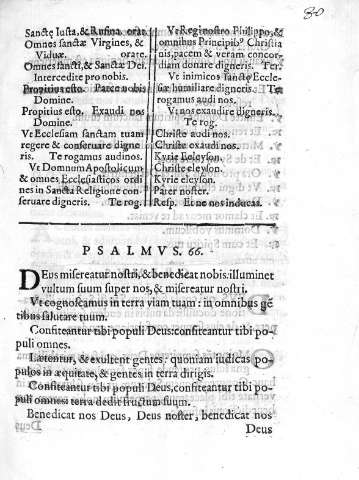 80
Sanctę Iusta, & Rufina, orat.
Omnes sanctæ Virgines, &
Viduæ orate.
Omnes sancti, & Sanctæ Dei.
Intercedite pro nobis.
Propitius esto. Parce nobis
Domine.
Propitius esto. Exaudi nos
Domine.
Vt Ecclesiam sanctam tuam
regere & conseruare digne
ris. Te rogamus audinos.
Vt Domnum Apostolicum
& omnes Ecclesiasticos ordi
nes in Sancta Religione con
seruare digneris. Te rog.
Vt Regi nostro Philippo, &
omnibus Principibꝰ Christia
nis, pacem & veram concor-
diam donare digneris. Ter.
Vt inimicos sanctę Eccle-
siæ humiliare digneris. Te
rogamus audi nos.
Vt nos exaudire digneris.
Te rog.
Christe audi nos.
Christe exaudi nos.
Kyrie Eeleyson.
Christe eleyson.
Kyrie eleyson.
Pater noster.
Resp. Et ne nos inducas.
PSALMVS. 66.
DEus misereatur nostri, & benedicat nobis. illuminet
vultum suum super nos, & misereatur nostri.
Vt cognoscamus in terra viam tuam: in omnibus gẽ
tibus salutare tuum.
Confiteantur tibi populi Deus: confiteantur tibi po-
puli omnes.
Lætentur, & exultent gentes: quoniam iudicas po-
pulos in æquitate, & gentes in terra dirigis.
Confiteantur tibi populi Deus, confiteantur tibi po-
puli omnes: terra dedit fructum suum.
Benedicat nos Deus, Deus noster, benedicat nos
Deus